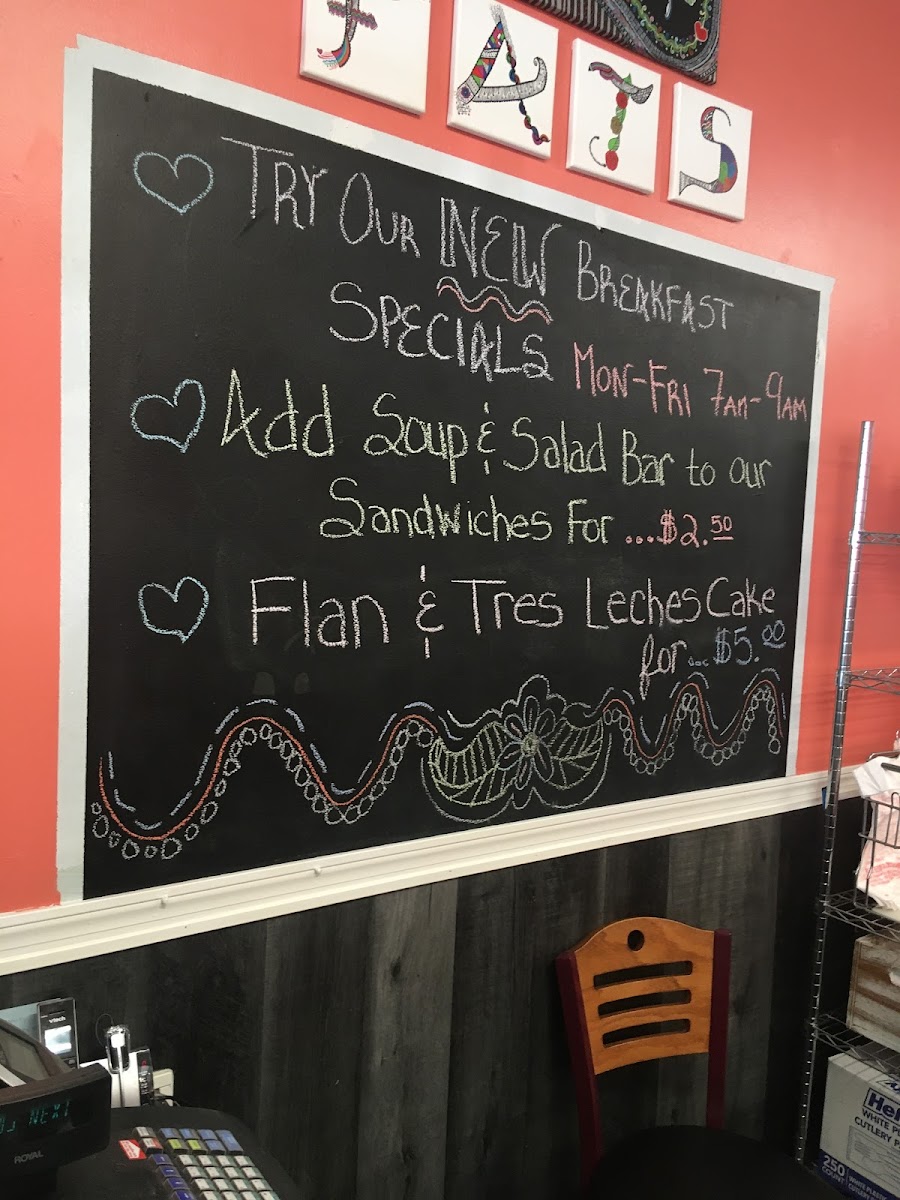 FATS
TRY OUR NEW BREAKFAST
SPECIALS MON-FRI 7AM-9AM
Add Soup & Salad Bar to our
Sandwiches For ...$2.50
Flan & Tres Leches Cake
for...$5.00
vtech
NEXT
ROYAL
WHITE
CUTLERY
250
COUNT